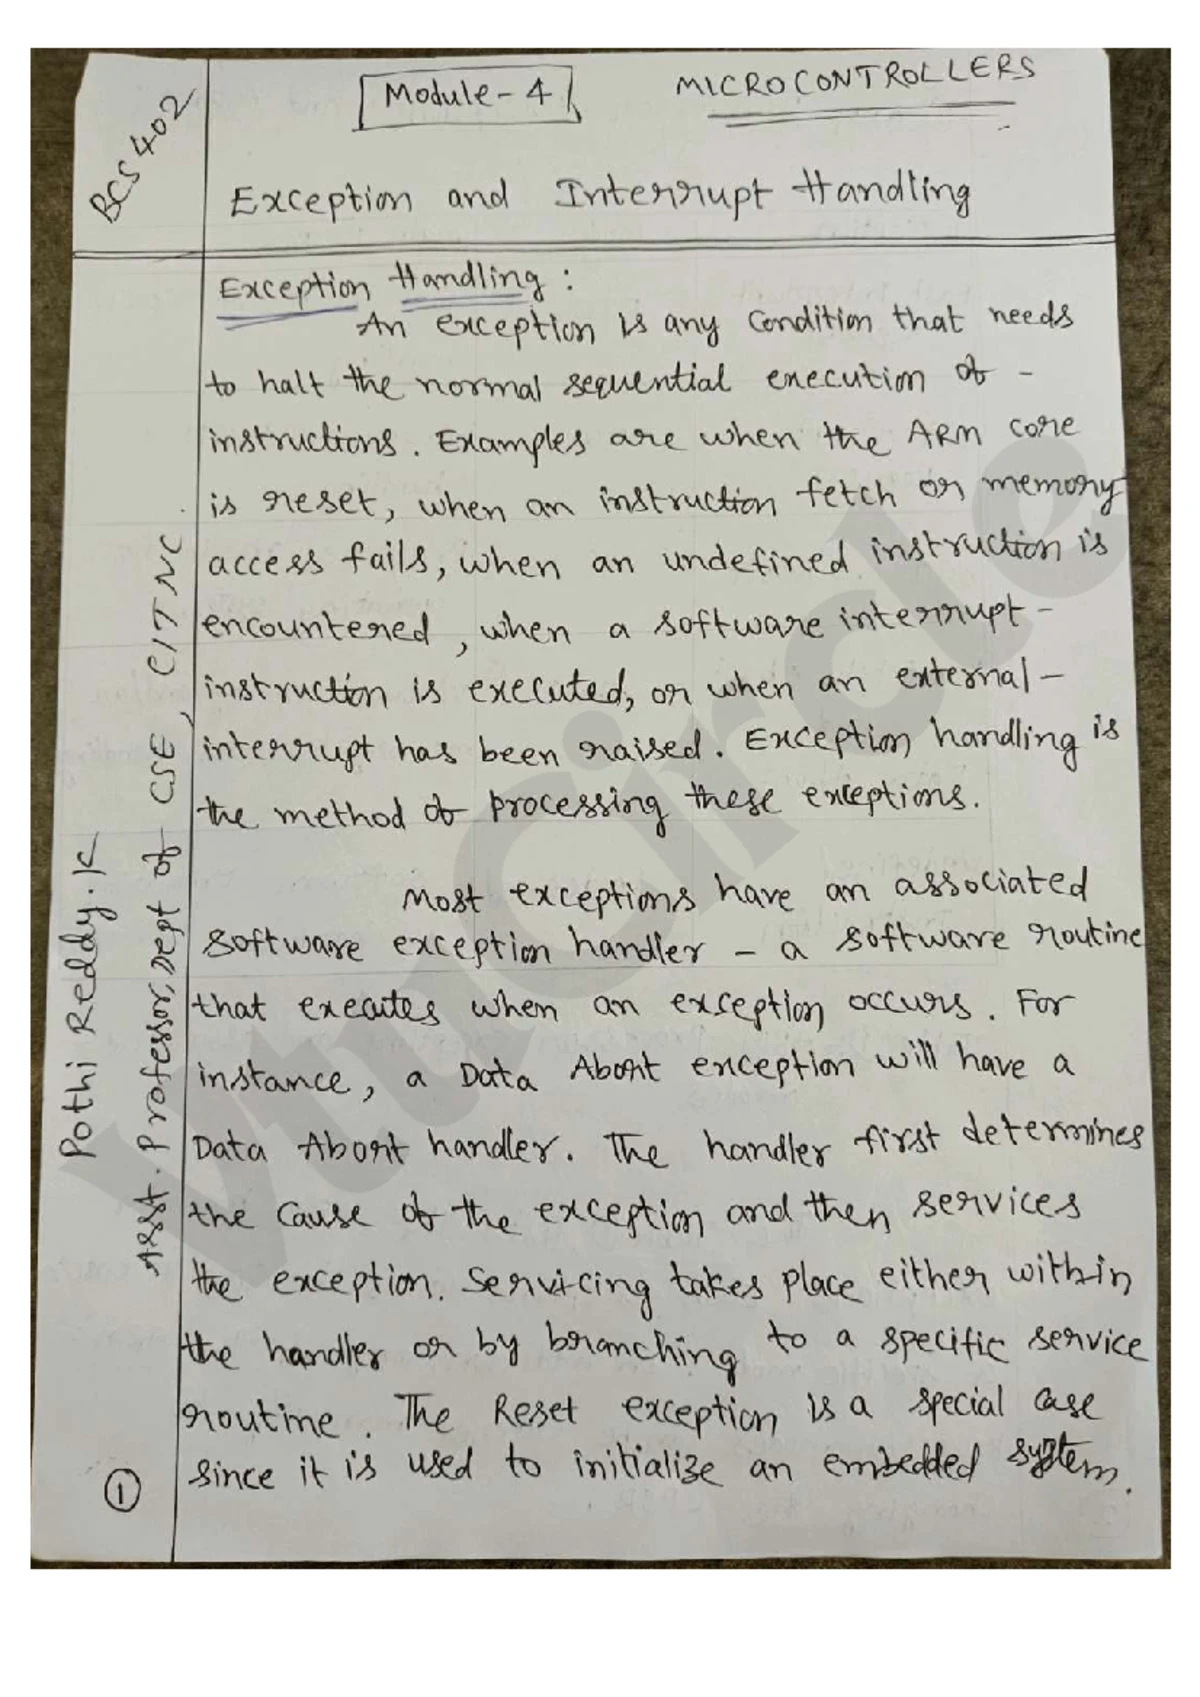 BCS402
Module-4
MICROCONTROLLERS
Exception and Interrupt Handling
Exception Handling:
An exception is any condition that needs
to halt the normal sequential execution of -
instructions. Examples are when the ARM core
is reset, when an instruction fetch or memory
access fails, when an undefined instruction is
encountered, when a software interrupt -
instruction is executed, or when an external -
interrupt has been raised. Exception handling is
the method of processing these exceptions.
Most exceptions have an associated
software exception handler - a software routine
that executes when an exception occurs. For
instance, a Data Abort exception will have a
Data Abort handler. The handler first determines
the cause of the exception and then services
the exception. Servicing takes place either within
the handler or by branching to a specific service
routine. The Reset exception is a special case
since it is used to initialize an embedded system.
Pothi Reddy.K
Asst. Professor, Dept of CSE, CITNC.
1
VtuCircle